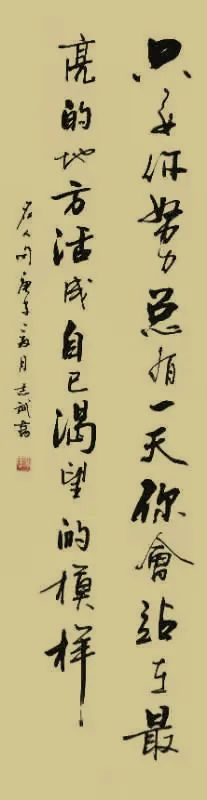 只要你努力总有一天你會站在最
亮的地方活成自己渴望的模样
名人句庚子三月志诚书